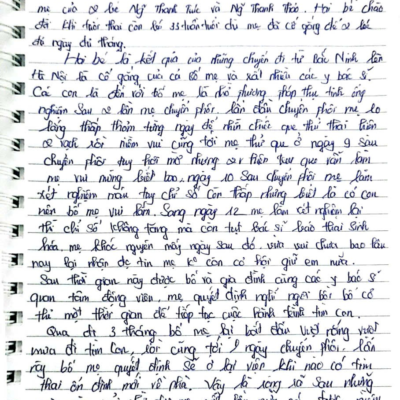 mẹ của 2 bé Ngô Thanh Trúc và Ngô Thanh Thảo. Hai bé chào
đời khi tròn thai còn bé 33 tuần tuổi dù mẹ đã cố gắng để 2 bé
đủ ngày đủ tháng.
Hai bé là kết quả của những chuyến đi từ Bắc Ninh lên
Hà Nội là cố gắng của cả bố mẹ và rất nhiều các y bác sĩ.
Các con là đến với bố mẹ là nhờ phương pháp thụ tinh ống
nghiệm Sau 2 lần mẹ chuyển phôi. lần đầu chuyển phôi mẹ lo
lắng thấp thỏm từng ngày để nhìn chiếc que thử thai hiện
2 vạch rồi niềm vui cũng tới mẹ thử que ở ngày 9 sau
chuyển phôi tuy hơi mờ nhưng sự hiện que que vẫn làm
mẹ vui mừng biết bao. ngày 10 Sau chuyển phôi mẹ làm
xét nghiệm máu tuy chỉ số còn thấp nhưng biết là có con
nên bố mẹ vui lắm. Song ngày 12 mẹ làm xét nghiệm lại
thì chỉ số không tăng mà còn tụt bác sĩ báo thai sinh
hóa. mẹ khóc nguyên mấy ngày sau đó. vừa vui chưa bao lâu
nay lại nhận đc tin mẹ k còn cơ hội giữ em nữa.
Sau thời gian này được bố và gia đình cùng các y bác sĩ
quan tâm động viên. mẹ quyết định nghỉ ngơi bồi bổ cơ
thể một thời gian để tiếp tục cuộc hành trình tìm con.
Qua đi 3 tháng bố mẹ lại bắt đầu vượt nắng vượt
mưa đi tìm con, rồi cũng tới ngày chuyển phôi. lần
này bố mẹ quyết định sẽ ở lại viện khi nào có tim
thai ổn định mới về nhà. Vậy là ròng rã sau những